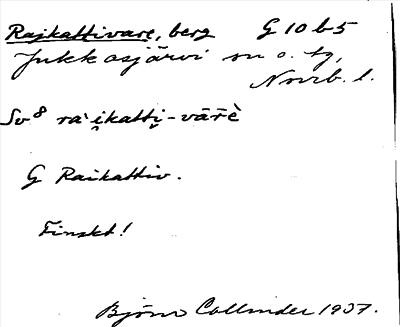 Rajkattivare, berg G 10 b5
Jukkasjärvi sn o. tg,
Norrb. l.
Sv8 ra`i̯katti̮-vārè
G Raikattiv.
Finskt!
Björn Collinder 1937.